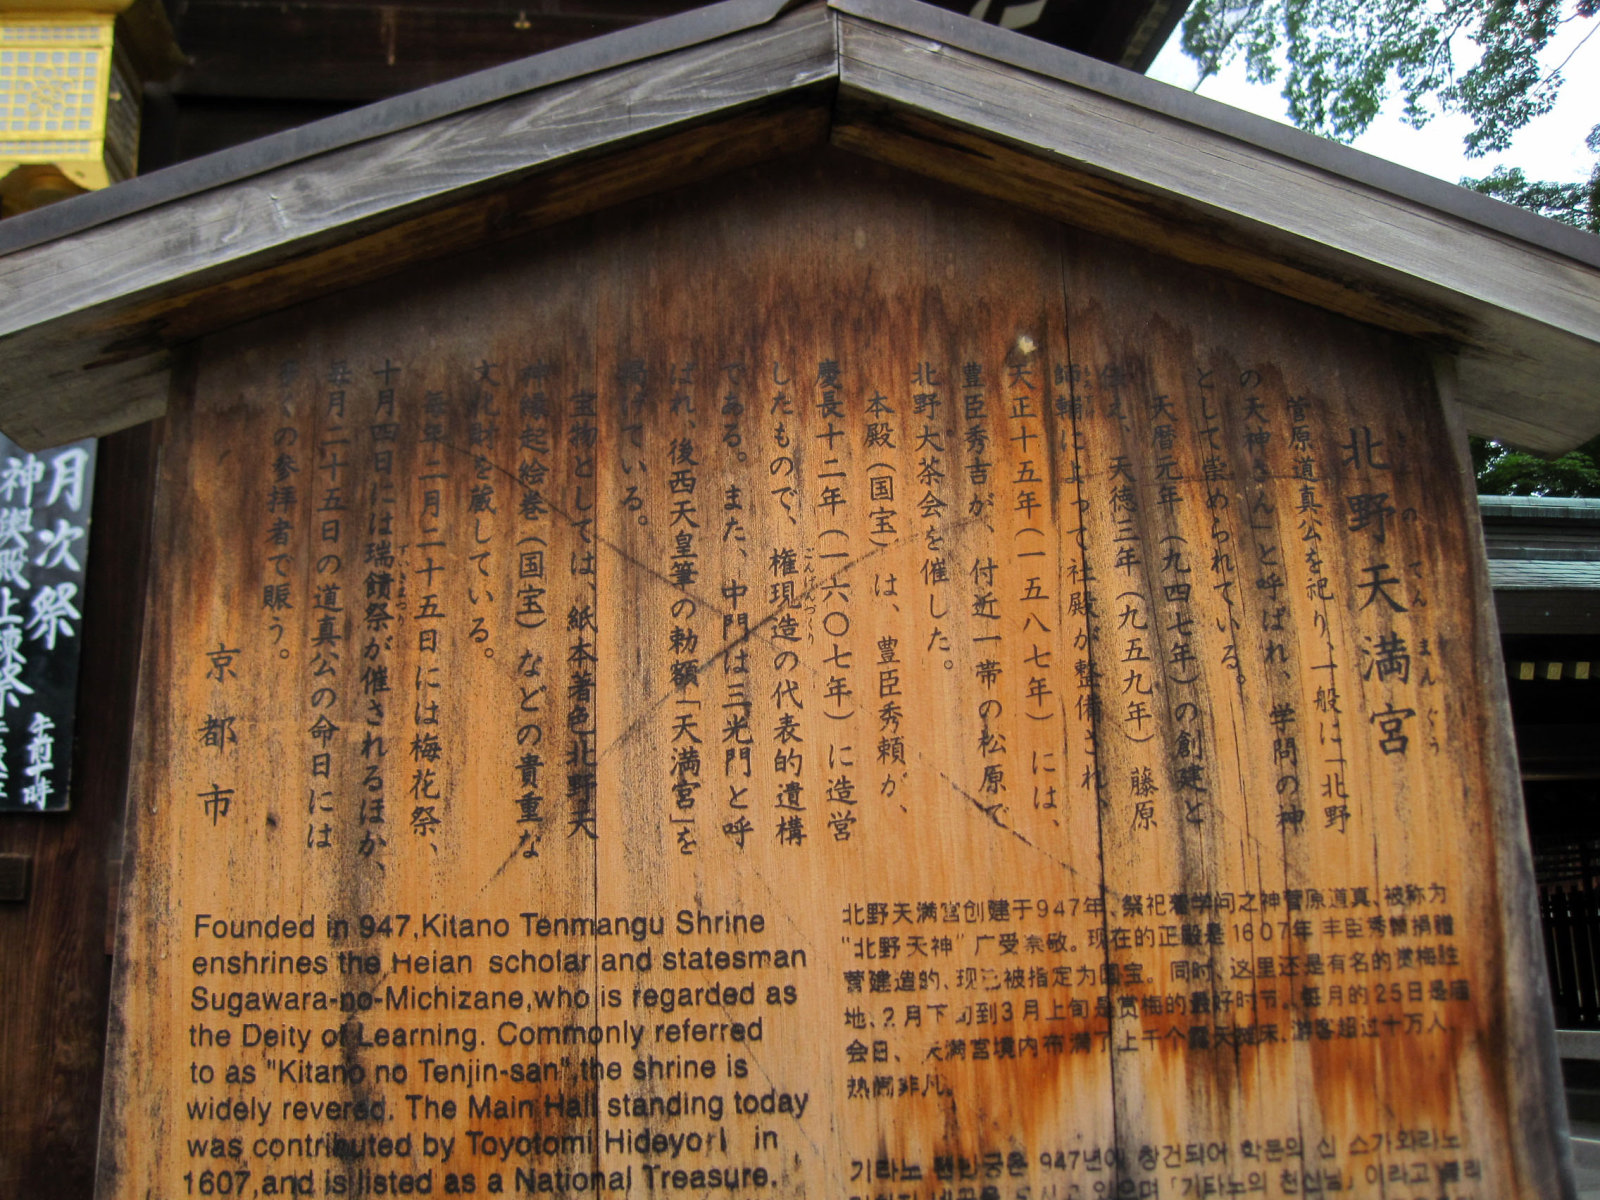 北野天満宮
きたのてんまんぐう
菅原道真公を祀り、一般に「北野
の天神さん」と呼ばれ、学問の神
として崇められている。
天暦元年(九四七年)の創建と
伝え、天徳三年(九五九年)藤原
師輔によって社殿が整備され、
もろすけ
天正十五年(一五八七年)には、
豊臣秀吉が、付近一帯の松原で
北野大茶会を催した。
本殿(国宝)は、豊臣秀頼が、
慶長十二年(一六〇七年)に造営
したもので、権現造の代表的遺構
ごんげんづくり
である。また、中門は三光門と呼
ばれ、後西天皇筆の勅額「天満宮」を
掲げている。
宝物としては、紙本著色北野天
神縁起絵巻(国宝)などの貴重な
文化財を蔵している。
毎年二月二十五日には梅花祭、
十月四日には瑞饋祭が催されるほか、
ずいきまつり
毎月二十五日の道真公の命日には
多くの参拝者で賑う。
京都市
Founded in 947,Kitano Tenmangu Shrine
enshrines the Heian scholar and statesman
Sugawara-no-Michizane,who is regarded as
the Deity of Learning. Commonly referred
to as "Kitano no Tenjin-san",the shrine is
widely revered. The Main Hall standing today
was contributed by Toyotomi Hideyori in
1607,and is listed as a National Treasure.
北野天满宫创建于947年、祭祀着学问之神菅原道真、被称为
"北野天神"广受崇敬。现在的正殿是1607年丰臣秀赖捐赠
营建造的、现已被指定为国宝。同时、这里还是有名的赏梅胜
地、2月下旬到3月上旬是赏梅的最好时节。每月的25日是庙
会日、天满宫境内布满了上千个露天摊床、游客超过十万人、
热闹非凡。
기타노 텐만궁은 947년에 창건되어 학문의 신 스가와라노
「기타노의 천신님」이라고 불리
月次祭
神輿殿上棟祭
午前十時